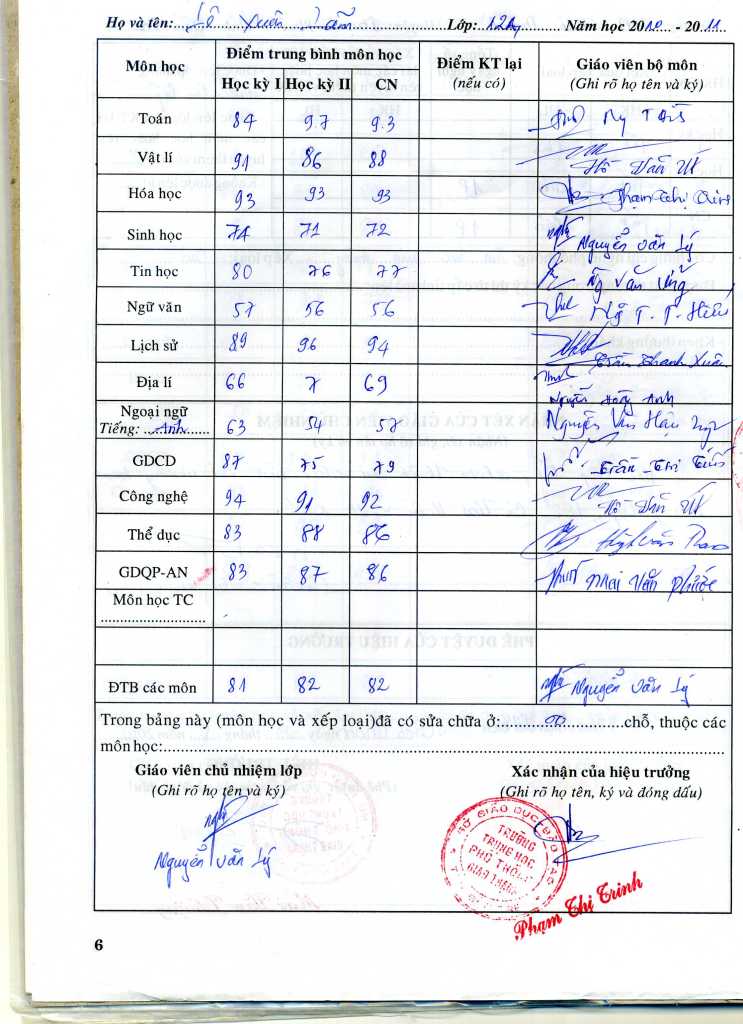 Họ và tên: Lê Xuân Lãm Lớp: 12A1 Năm học 2010 - 2011
Môn học Điểm trung bình môn học Điểm KT lại (nếu có) Giáo viên bộ môn (Ghi rõ họ tên và ký)
Học kỳ I Học kỳ II CN
Toán 84 9.7 9.3
Vật lí 91 86 88 Hồ Văn Út
Hóa học 93 93 93 Phạm Thị
Sinh học 74 71 72 Nguyễn Văn Lý
Tin học 80 76 77 Văn
Ngữ văn 57 56 56 Ng T. T. Hiếu
Lịch sử 89 96 94 Trần Thanh Xuân
Địa lí 66 7 69 Nguyễn Hoàng Anh
Ngoại ngữ
Tiếng: Anh 63 54 57 Nguyễn Văn Hậu
GDCD 87 75 79 Trần Thị
Công nghệ 94 91 92 Hồ Văn Út
Thể dục 83 88 86 Huỳnh Văn
GDQP-AN 83 87 86 Mai Văn Phước
Môn học TC
ĐTB các môn 81 82 82 Nguyễn Văn Lý
Trong bảng này (môn học và xếp loại)đã có sửa chữa ở: 00 chỗ, thuộc các
môn học:
Giáo viên chủ nhiệm lớp Xác nhận của hiệu trưởng
(Ghi rõ họ tên và ký) (Ghi rõ họ tên, ký và đóng dấu)
SỞ GIÁO DỤC
TRƯỜNG
TRUNG HỌC
PHỔ THÔNG
Nguyễn Văn Lý
Phạm Thị Trinh
6